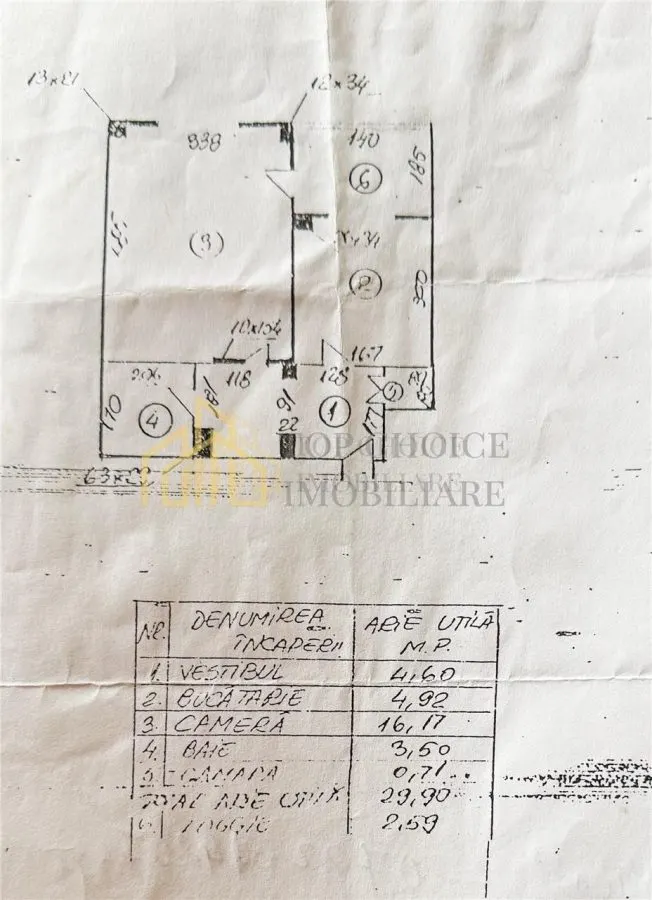 13x21
12x34
338
140
6
185
(3)
485
x34
2
300
10x34
167
206
118
128
110
4
181
91
1
5
22
117
63x22
TOP CHOICE
IMOBILIARE
IMOBILIARE
NR. DENUMIREA ÎNCAPERII ARIE UTILĂ M.P.
1. VESTIBUL 4,60
2. BUCĂTARIE 4,92
3. CAMERĂ 16,17
4. BAIE 3,50
5. CĂMARĂ 0,71
TOTAL ARIE UTILĂ 29,90
6. LOGGIE 2,59